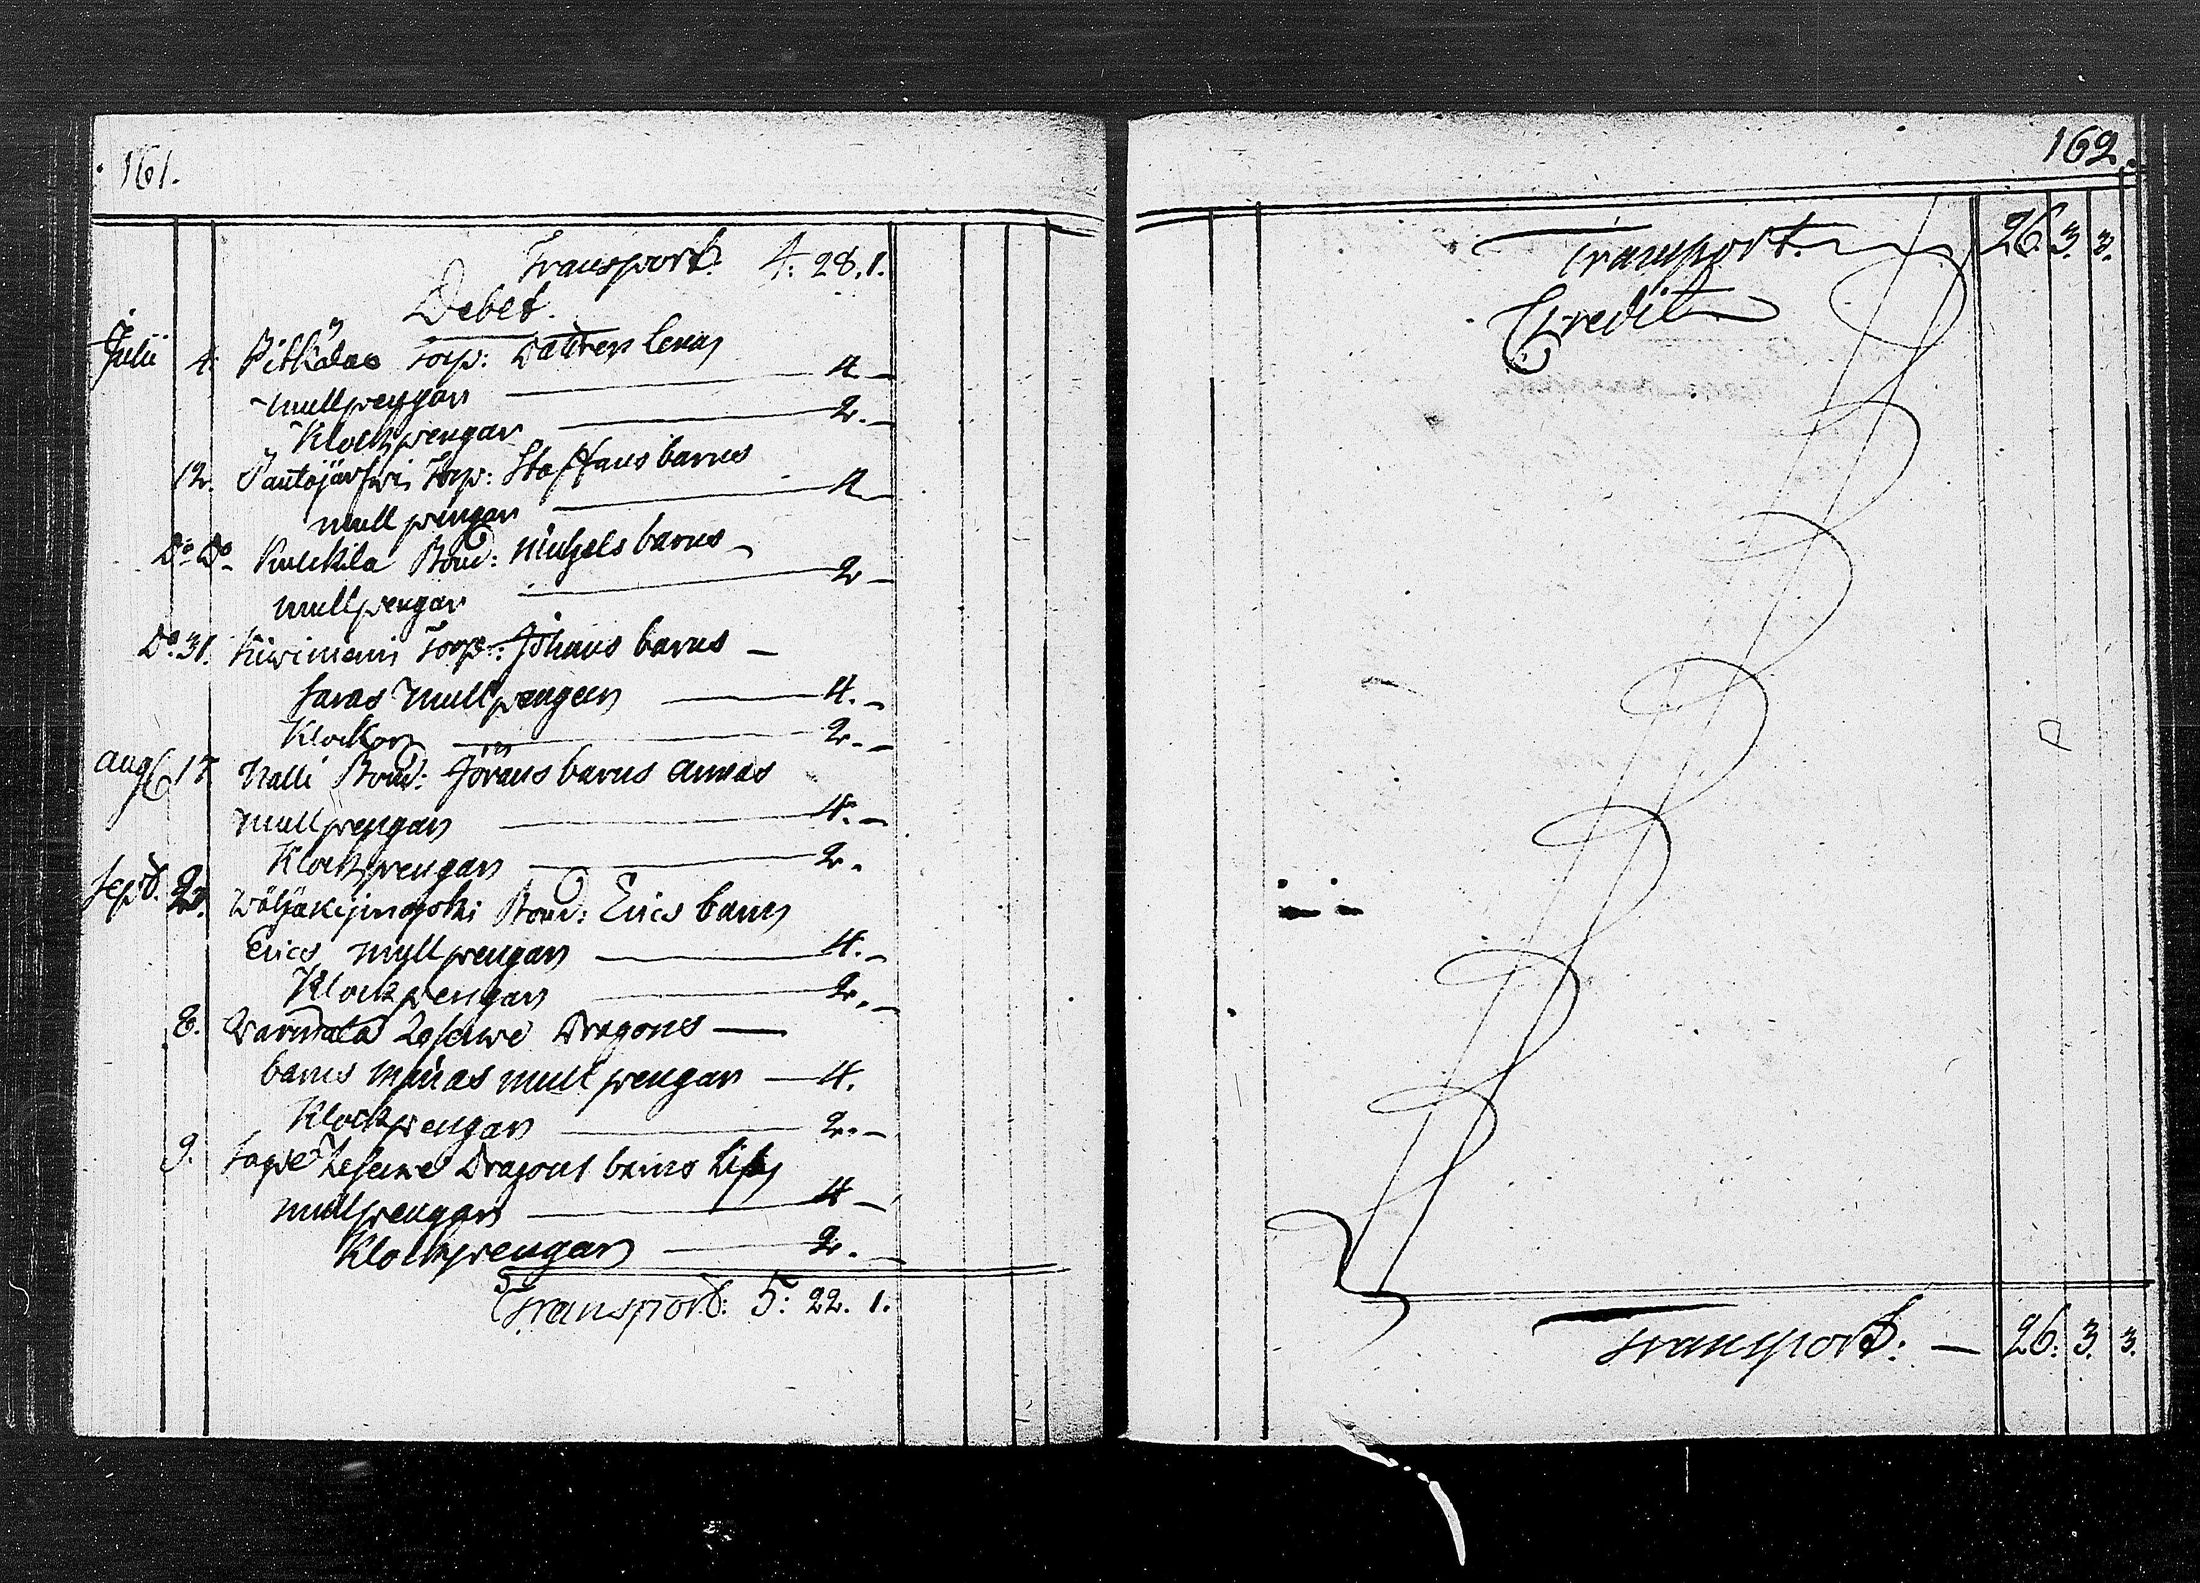 161.
Transport: 4: 28. 1.
Debet.
Julii 4. Pitkälas Torp: dåtren Lenas
mullpengar 4. -
Klockpengar 2. -
12. Torp: Staffans barns
mull pengar 4 -
Do Do Kulckila Bond: Michels barns -
mullpengar 2 -
Do. 31. Kiwiniemi Torp: Johans barns -
Saras mullpengar 4. -
Klockan 2. -
Aug 17 Nalli Bond: Jörans barns Annas
mullpengar 4. -
Klockpengar 2.
Sept. 2. Bond: Erics barns
Erics mullpengar 4. -
Klockpengar 2. -
8. Warmala Reserwe Dragons
barns Marias mull pengar 4.
Klockpengar 2. -
9. Reserwe Dragons barns
mullpengar 4 -
Klockpengar 2. -
Transport: 5: 22. 1.
162.
Transport. 26. 3. 3.
Credit
Transport: - 26. 3. 3.